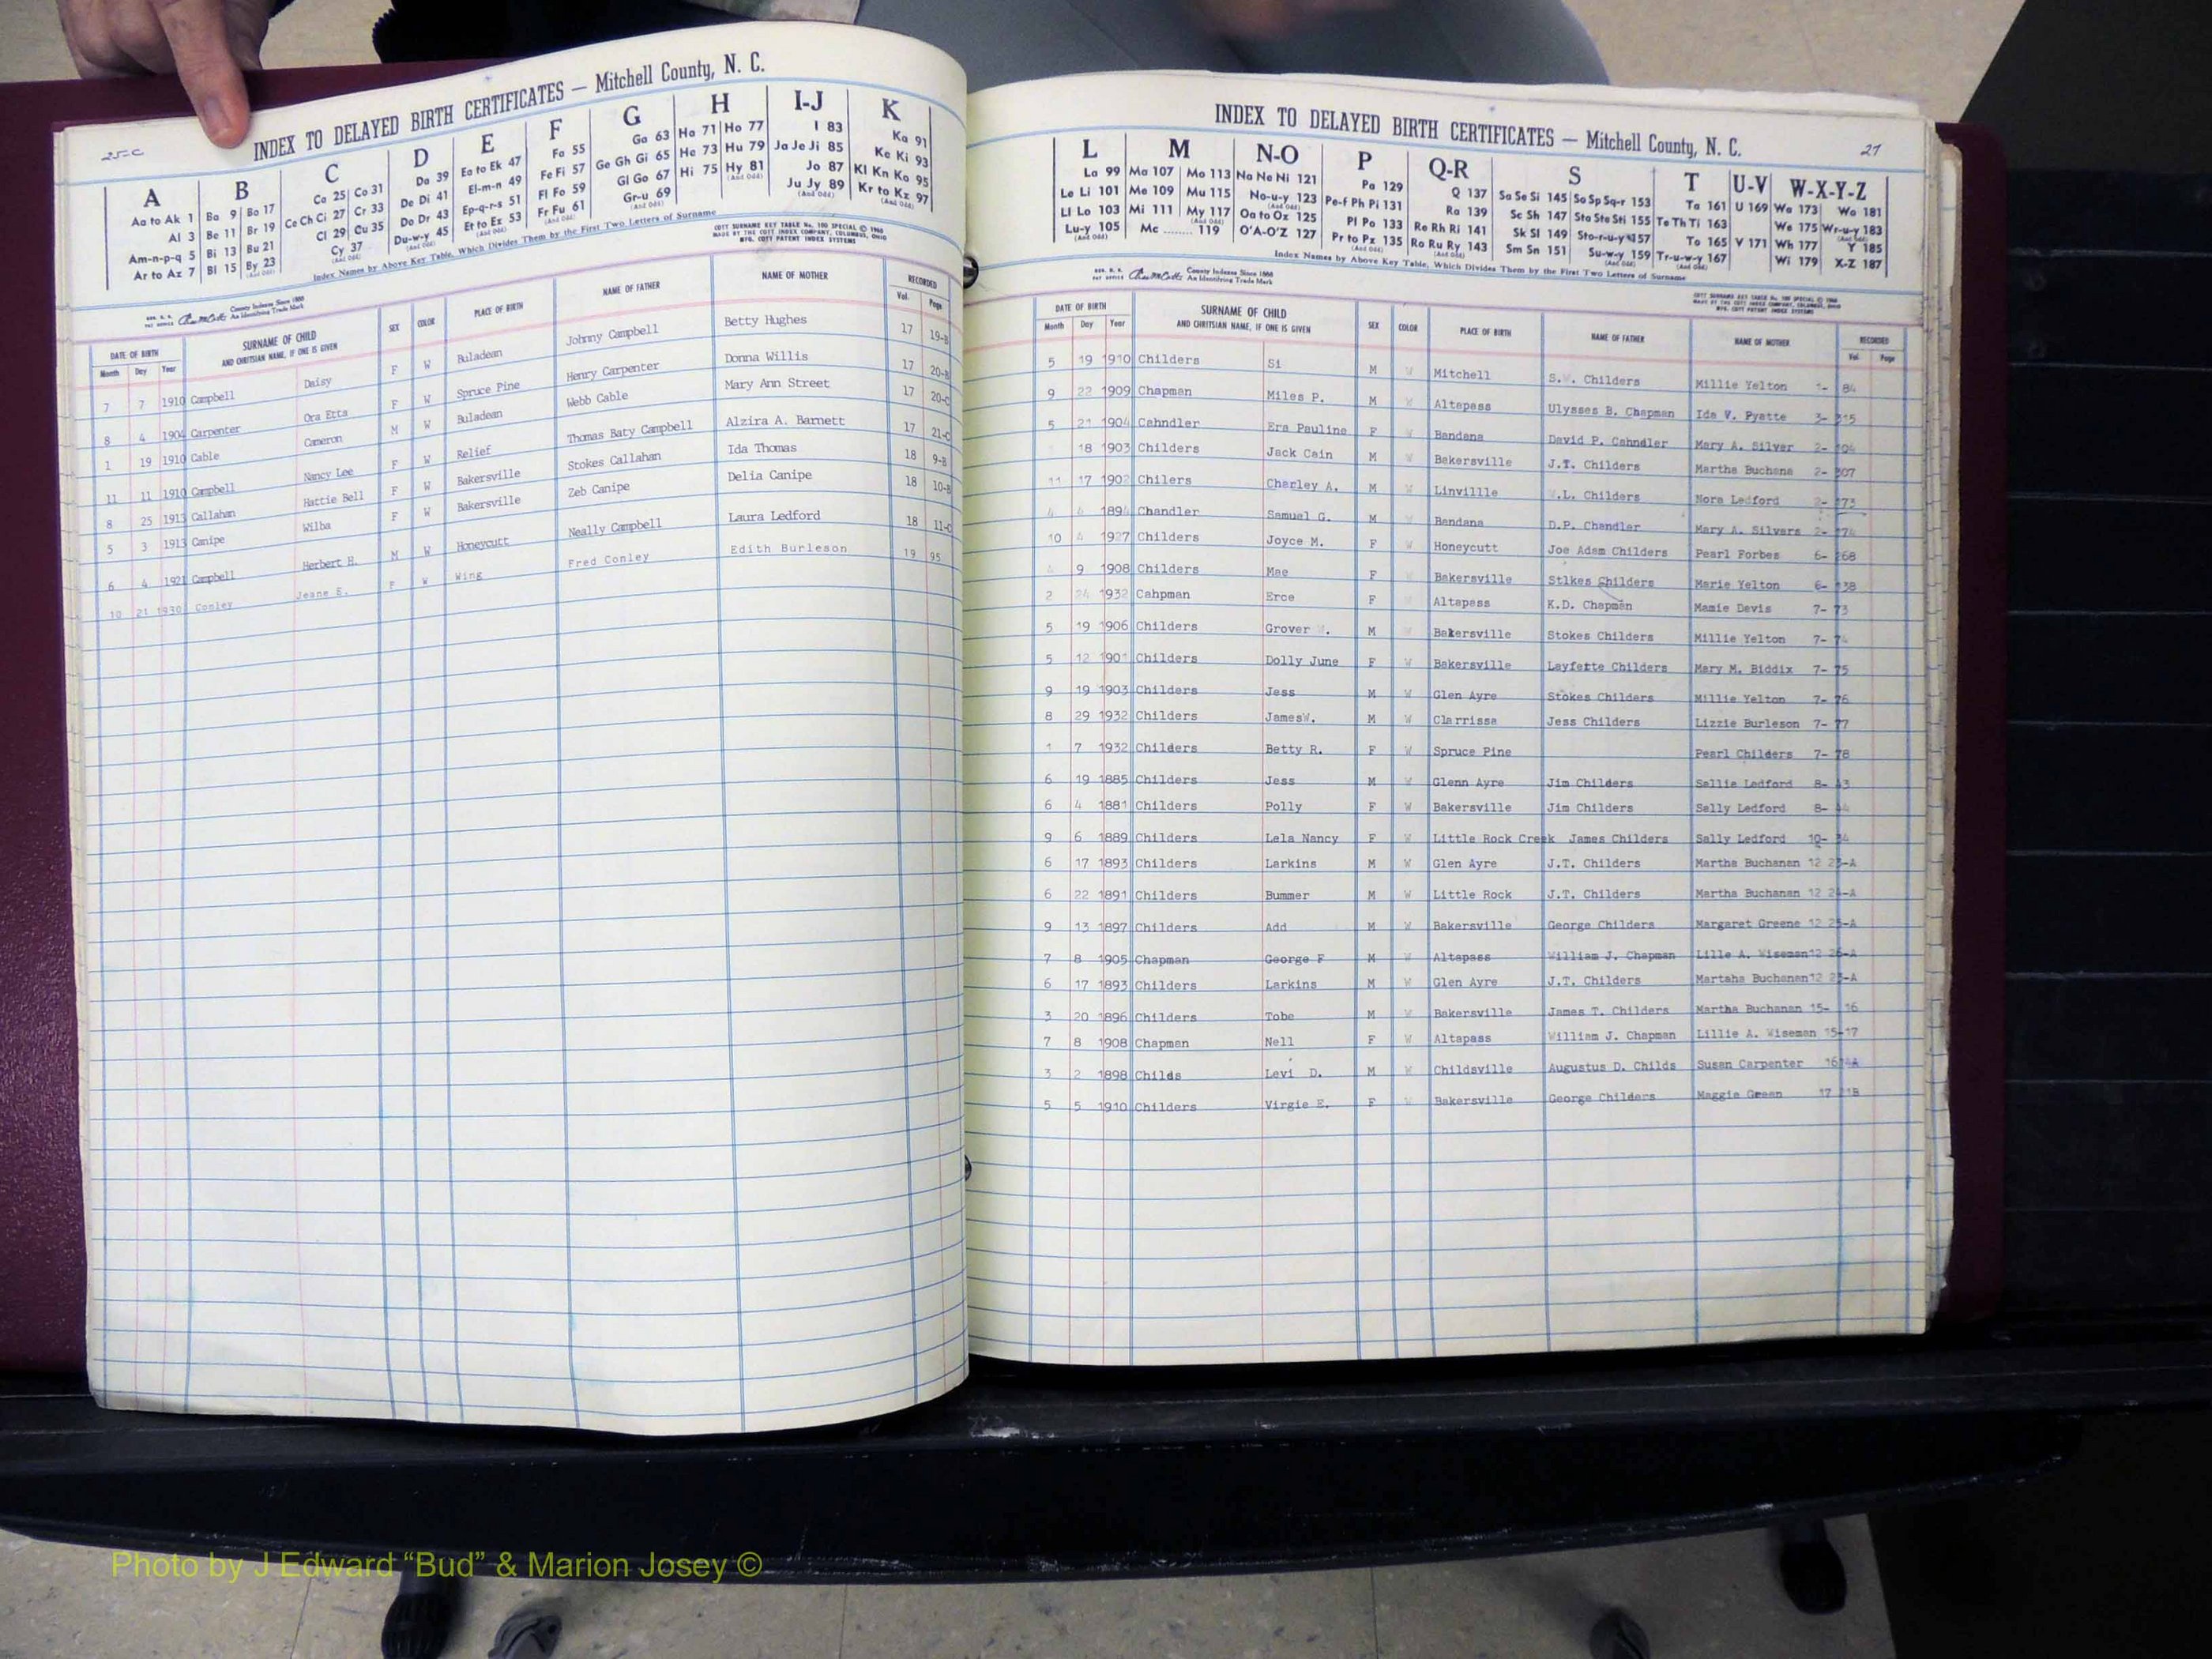 25-C
INDEX TO DELAYED BIRTH CERTIFICATES — Mitchell County, N. C.
A B C D E F G H I-J K
Aa to Ak 1 Ba 9 Bo 17 Ca 25 Co 31 Da 39 Ea to Ek 47 Fa 55 Ga 63 Ha 71 Ho 77 I 83 Ka 91
Al 3 Be 11 Br 19 Ce Ch Ci 27 Cr 33 De Di 41 El-m-n 49 Fe Fi 57 Ge Gh Gi 65 He 73 Hu 79 Ja Je Ji 85 Ke Ki 93
Am-n-p-q 5 Bi 13 Bu 21 Cl 29 Cu 35 Do Dr 43 Ep-q-r-s 51 Fl Fo 59 Gl Go 67 Hi 75 Hy 81 Jo 87 Kl Kn Ko 95
Ar to Az 7 Bl 15 By 23 Cy 37 Du-w-y 45 Et to Ez 53 Fr Fu 61 Gr-u 69 Ju Jy 89 Kr to Kz 97
Index Names by Above Key Table, Which Divides Them by the First Two Letters of Surname
COTT SURNAME KEY TABLE No. 100 SPECIAL © 1960
MADE BY THE COTT INDEX COMPANY, COLUMBUS, OHIO
MFG. COTT PATENT INDEX SYSTEMS
County Indexes Since 1888
An Identifying Trade Mark
DATE OF BIRTH SURNAME OF CHILD SEX COLOR PLACE OF BIRTH NAME OF FATHER NAME OF MOTHER RECORDED
Month Day Year AND CHRITSIAN NAME, IF ONE IS GIVEN Vol. Page
7 7 1910 Campbell Daisy F W Buladean Johnny Campbell Betty Hughes 17 19-B
8 4 1904 Carpenter Ora Etta F W Spruce Pine Henry Carpenter Donna Willis 17 20-B
1 19 1910 Cable Cameron M W Buladean Webb Cable Mary Ann Street 17 20-C
11 11 1910 Campbell Nancy Lee F W Relief Thomas Baty Campbell Alzira A. Barnett 17 21-C
8 25 1913 Callahan Hattie Bell F W Bakersville Stokes Callahan Ida Thomas 18 9-B
5 3 1913 Canipe Wilba F W Bakersville Zeb Canipe Delia Canipe 18 10-B
6 4 1921 Campbell Herbert H. M W Honeycutt Neally Campbell Laura Ledford 18 11-C
10 21 1930 Conley Jeane E. F W Wing Fred Conley Edith Burleson 19 95
INDEX TO DELAYED BIRTH CERTIFICATES — Mitchell County, N. C. 27
L M N-O P Q-R S T U-V W-X-Y-Z
La 99 Ma 107 Mo 113 Na Ne Ni 121 Pa 129 Q 137 Sa Se Si 145 So Sp Sq-r 153 Ta 161 U 169 Wa 173 Wo 181
Le Li 101 Me 109 Mu 115 No-u-y 123 Pe-f Ph Pi 131 Ra 139 Sc Sh 147 Sta Ste Sti 155 Te Th Ti 163 We 175 Wr-u-y 183
Ll Lo 103 Mi 111 My 117 Oa to Oz 125 Pl Po 133 Re Rh Ri 141 Sk Sl 149 Sto-r-u-y 157 To 165 V 171 Wh 177 Y 185
Lu-y 105 Mc 119 O'A-O'Z 127 Pr to Pz 135 Ro Ru Ry 143 Sm Sn 151 Su-w-y 159 Tr-u-w-y 167 Wi 179 X-Z 187
Index Names by Above Key Table, Which Divides Them by the First Two Letters of Surname
County Indexes Since 1888
An Identifying Trade Mark
COTT SURNAME KEY TABLE No. 100 SPECIAL © 1960
MADE BY THE COTT INDEX COMPANY, COLUMBUS, OHIO
MFG. COTT PATENT INDEX SYSTEMS
DATE OF BIRTH SURNAME OF CHILD SEX COLOR PLACE OF BIRTH NAME OF FATHER NAME OF MOTHER RECORDED
Month Day Year AND CHRITSIAN NAME, IF ONE IS GIVEN Vol. Page
5 19 1910 Childers Si M W Mitchell S.W. Childers Millie Yelton 1- 84
9 22 1909 Chapman Miles P. M W Altapass Ulysses B. Chapman Ida V. Pyatte 3- 315
5 21 1904 Cahndler Era Pauline F W Bandana David P. Cahndler Mary A. Silver 2-
18 1903 Childers Jack Cain M W Bakersville J.T. Childers Martha Buchana 2- 307
11 17 1902 Chilers Charley A. M W Linvillle .L. Childers Nora Ledford
4 4 1894 Chandler Samuel G. M W Bandana D.P. Chandler Mary A. Silvers
10 4 1927 Childers Joyce M. F W Honeycutt Joe Adam Childers Pearl Forbes 6- 268
9 1908 Childers Mae F W Bakersville Stlkes Childers Marie Yelton 6-
2 24 1932 Cahpman Erce F W Altapass K.D. Chapman Mamie Davis 7- 73
5 19 1906 Childers Grover . M W Bakersville Stokes Childers Millie Yelton 7- 74
5 12 1901 Childers Dolly June F W Bakersville Layfette Childers Mary M. Biddix 7- 75
9 19 1903 Childers Jess M W Glen Ayre Stokes Childers Millie Yelton 7- 76
8 29 1932 Childers JamesW. M W Clarrissa Jess Childers Lizzie Burleson 7- 77
1 7 1932 Childers Betty R. F W Spruce Pine Pearl Childers 7- 78
6 19 1885 Childers Jess M W Glenn Ayre Jim Childers Sallie Ledford 8-
6 4 1881 Childers Polly F W Bakersville Jim Childers Sally Ledford 8-
9 6 1889 Childers Lela Nancy F W Little Rock Creek James Childers Sally Ledford 10-
6 17 1893 Childers Larkins M W Glen Ayre J.T. Childers Martha Buchanan 12 23-A
6 22 1891 Childers Bummer M W Little Rock J.T. Childers Martha Buchanan 12 24-A
9 13 1897 Childers Add M W Bakersville George Childers Margaret Greene 12 25-A
7 8 1905 Chapman George F M W Altapass William J. Chapman Lille A. Wiseman12 26-A
6 17 1893 Childers Larkins M W Glen Ayre J.T. Childers Martaha Buchanan12 23-A
3 20 1896 Childers Tobe M W Bakersville James T. Childers Martha Buchanan 15- 16
7 8 1908 Chapman Nell F W Altapass William J. Chapman Lillie A. Wiseman 15-17
3 2 1898 Childs Levi D. M W Childsville Augustus D. Childs Susan Carpenter 16
5 5 1910 Childers Virgie E. F W Bakersville George Childers Maggie Green 17
Photo by J Edward “Bud” & Marion Josey ©